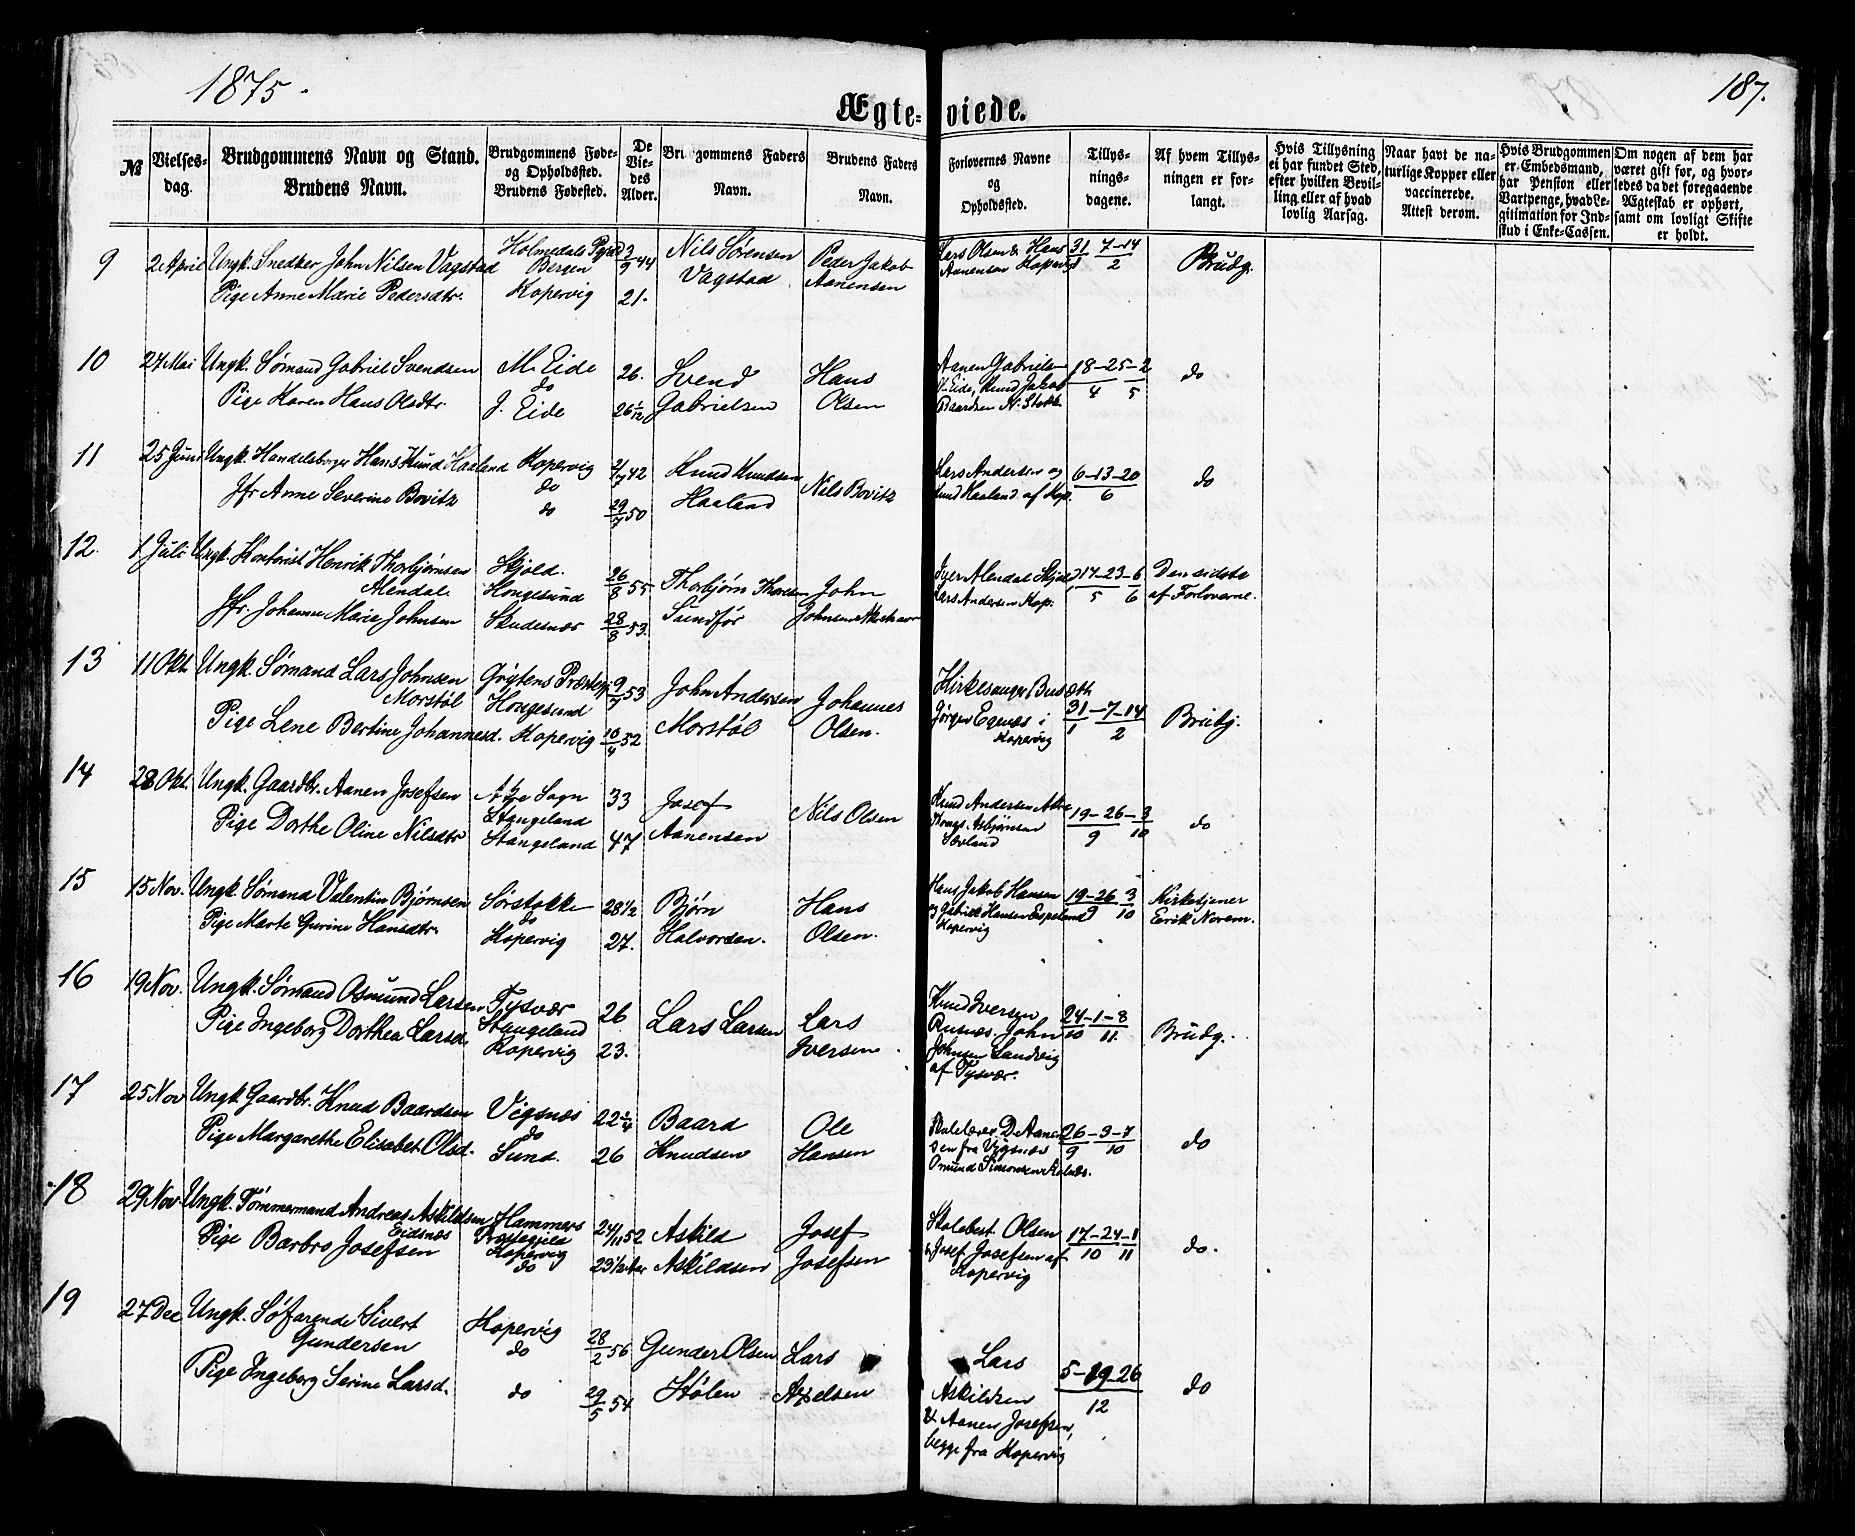 1875.
187.
Ægte-viede.
№
Vielses-dag.
Brudgommens Navn og Stand.
Brudens Navn.
Brudgommens Føde- og Opholdssted.
Brudens Fødested.
De Viedes Alder.
Brudgommens Faders Navn.
Brudens Faders Navn.
Forlovernes Navne og Opholdsted.
Tillysningsdagene.
Af hvem Tillysningen er forlangt.
Hvis Tillysning ei har fundet Sted, efter hvilken Bevilling eller af hvad lovlig Aarsag.
Naar havt de naturlige Kopper eller vaccinerede. Attest derom.
Hvis Brudgommen er Embedsmand, har Pension eller Vartpenge, hvad Legitimation for Indskud i Enke-Cassen.
Om nogen af dem har været gift før, og hvorledes da det foregaaende Ægteskab er ophørt, samt om lovligt Skifte er holdt.
9 2 April Ungk. Snedker John Nilsen Vagstad
Pige Anne Marie Pedersdtr.
Holmedals
Bergen
Kopervig
44
21.
Nils Sørensen
Vagstad
Peder Jakob
Aanensen
Lars Olsen & Hans
Aanensen Kopervig
31 7-14
1 2
Brudg.
10 27 Mai Ungk. Sømand Gabriel Svendsen
Pige Karen Hans Olsdtr.
M. Eide
do
J. Eide
26.
26 1/12
Svend
Gabrielsen
Hans
Olsen
Aanen Gabrielsen
Eide, Knud Jakob
Baardsen N. Stokke
18-25-2
4 5
do
11 25 Juni Ungk. Handelsborger Hans Knud Haaland
Jfr Anne Severine Bovitz
Kopervig
do
do
2/7 42
29/7 50
Knud Knudsen
Haaland
Nils Bovitz
Lars Andersen og
Knud Haaland af Kop.
6-13-20
6
do
12. 1 Juli Ungk. Kontorist Henrik Thorbjørnsen
Alendal.
Jfr. Johanne Marie Johnsen
Skjold.
Hougesund
Skudesnæs
26/8 55
28/8 53.
Thorbjørn Thorsen
Sundfør
John
Johnsen
Iver Alendal Skjold
Lars Andersen Kop.
17-23-6
5 6
Den sidste
af Forloverne.
13 11 Okt. Ungk. Sømand Lars Johnsen
Morstøl
Pige Lene Bertine Johannesd.
Grytens Præstegj
Hougesund
Kopervig
9/7 53
10/4 52
John Andersen
Morstøl
Johannes
Olsen.
Kirkesanger Busæth
Jørgen Egenæs i
Kopervig
31-7-14
1 2
Brudg.
14 28 Okt. Ungk. Gaardbr. Aanen Josefsen
Pige Dorthe Oline Nilsdtr
Sogn
Stangeland
Stangeland
33
47
Josef
Aanensen
Nils Olsen
Knud Andersen
Asbjørnsen
Sævland
19-26-3
9 10
do
15 15 Nov. Ungk. Sømand Valentin Bjørnsen
Pige Marte Gurine Hansdtr.
Sørstokke
do
Kopervig
28 1/2
27.
Bjørn
Halvorsen.
Hans
Olsen.
Hans Jakob Hansen
og Gabriel Hansen Espeland
Kopervig
19-26 3
9 10
Kirketjener
Eerik Norem.
16 19 Nov. Ungk. Sømand Osmund Larsen
Pige Ingeborg Dorthea Larsd.
Tysvær
Stangeland
Kopervig
26
23.
Lars Larsen
Lars
Iversen.
Knud Iversen
Rusnæs. John
Johnsen Sandvig
af Tysvær.
24-1-8
10 11.
Brudg.
17 25 Nov Ungk. Gaardbr. Knud Baardsen
Pige Margarethe Elisabet Olsd.
Vigsnæs
do
Sund.
22 1/4
26
Baard
Knudsen
Ole
Hansen
Skolelærer D. Aanen
sen fra Vigsnæs
Osmund Simonsen
26-3-7
9 10
do
18 29 Nov. Ungk. Tømmermand Andreas Askildsen
Eidsnæs
Pige Barbro Josefsen
Hammers
Præstegjeld
Kopervig
do
24/11 52
23 1/2 Aar
Askild
Askildsen
Josef
Josefsen
Olsen
& Josef Josefsen af
Kopervig
17-24-1
10 11
do.
19 27 Dec Ungk. Søfarende Sivert
Gundersen
Pige Ingeborg Serine Larsd.
Kopervig
do
do
28/2 56
29/5 54
Gunder Olsen
Stølen
Lars
Axelsen
Lars
Askildsen
& Aanen Josefsen,
begge fra Kopervig
5-19-26
12
do